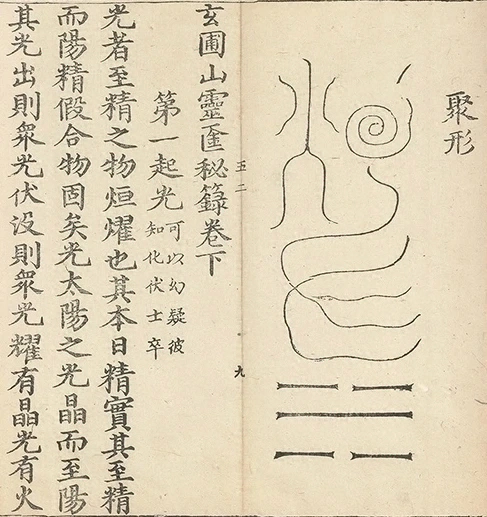 聚形
玄圃山靈匧秘籙卷下
第一起光
可以幻疑彼
知化伏士卒
光者至精之物烜燿也其本日精實其至精
而陽精假合物固矣光太陽之光晶而至陽
其光出則衆光伏沒則衆光耀有晶光有火
五二
九